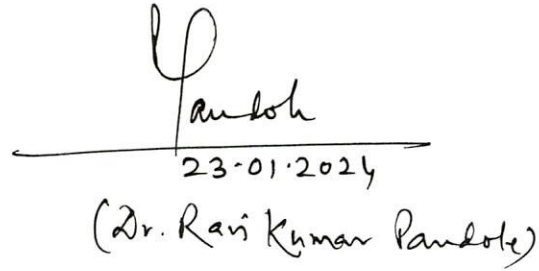 Pandole
23.01.2024
(Dr. Ravi Kumar Pandole)